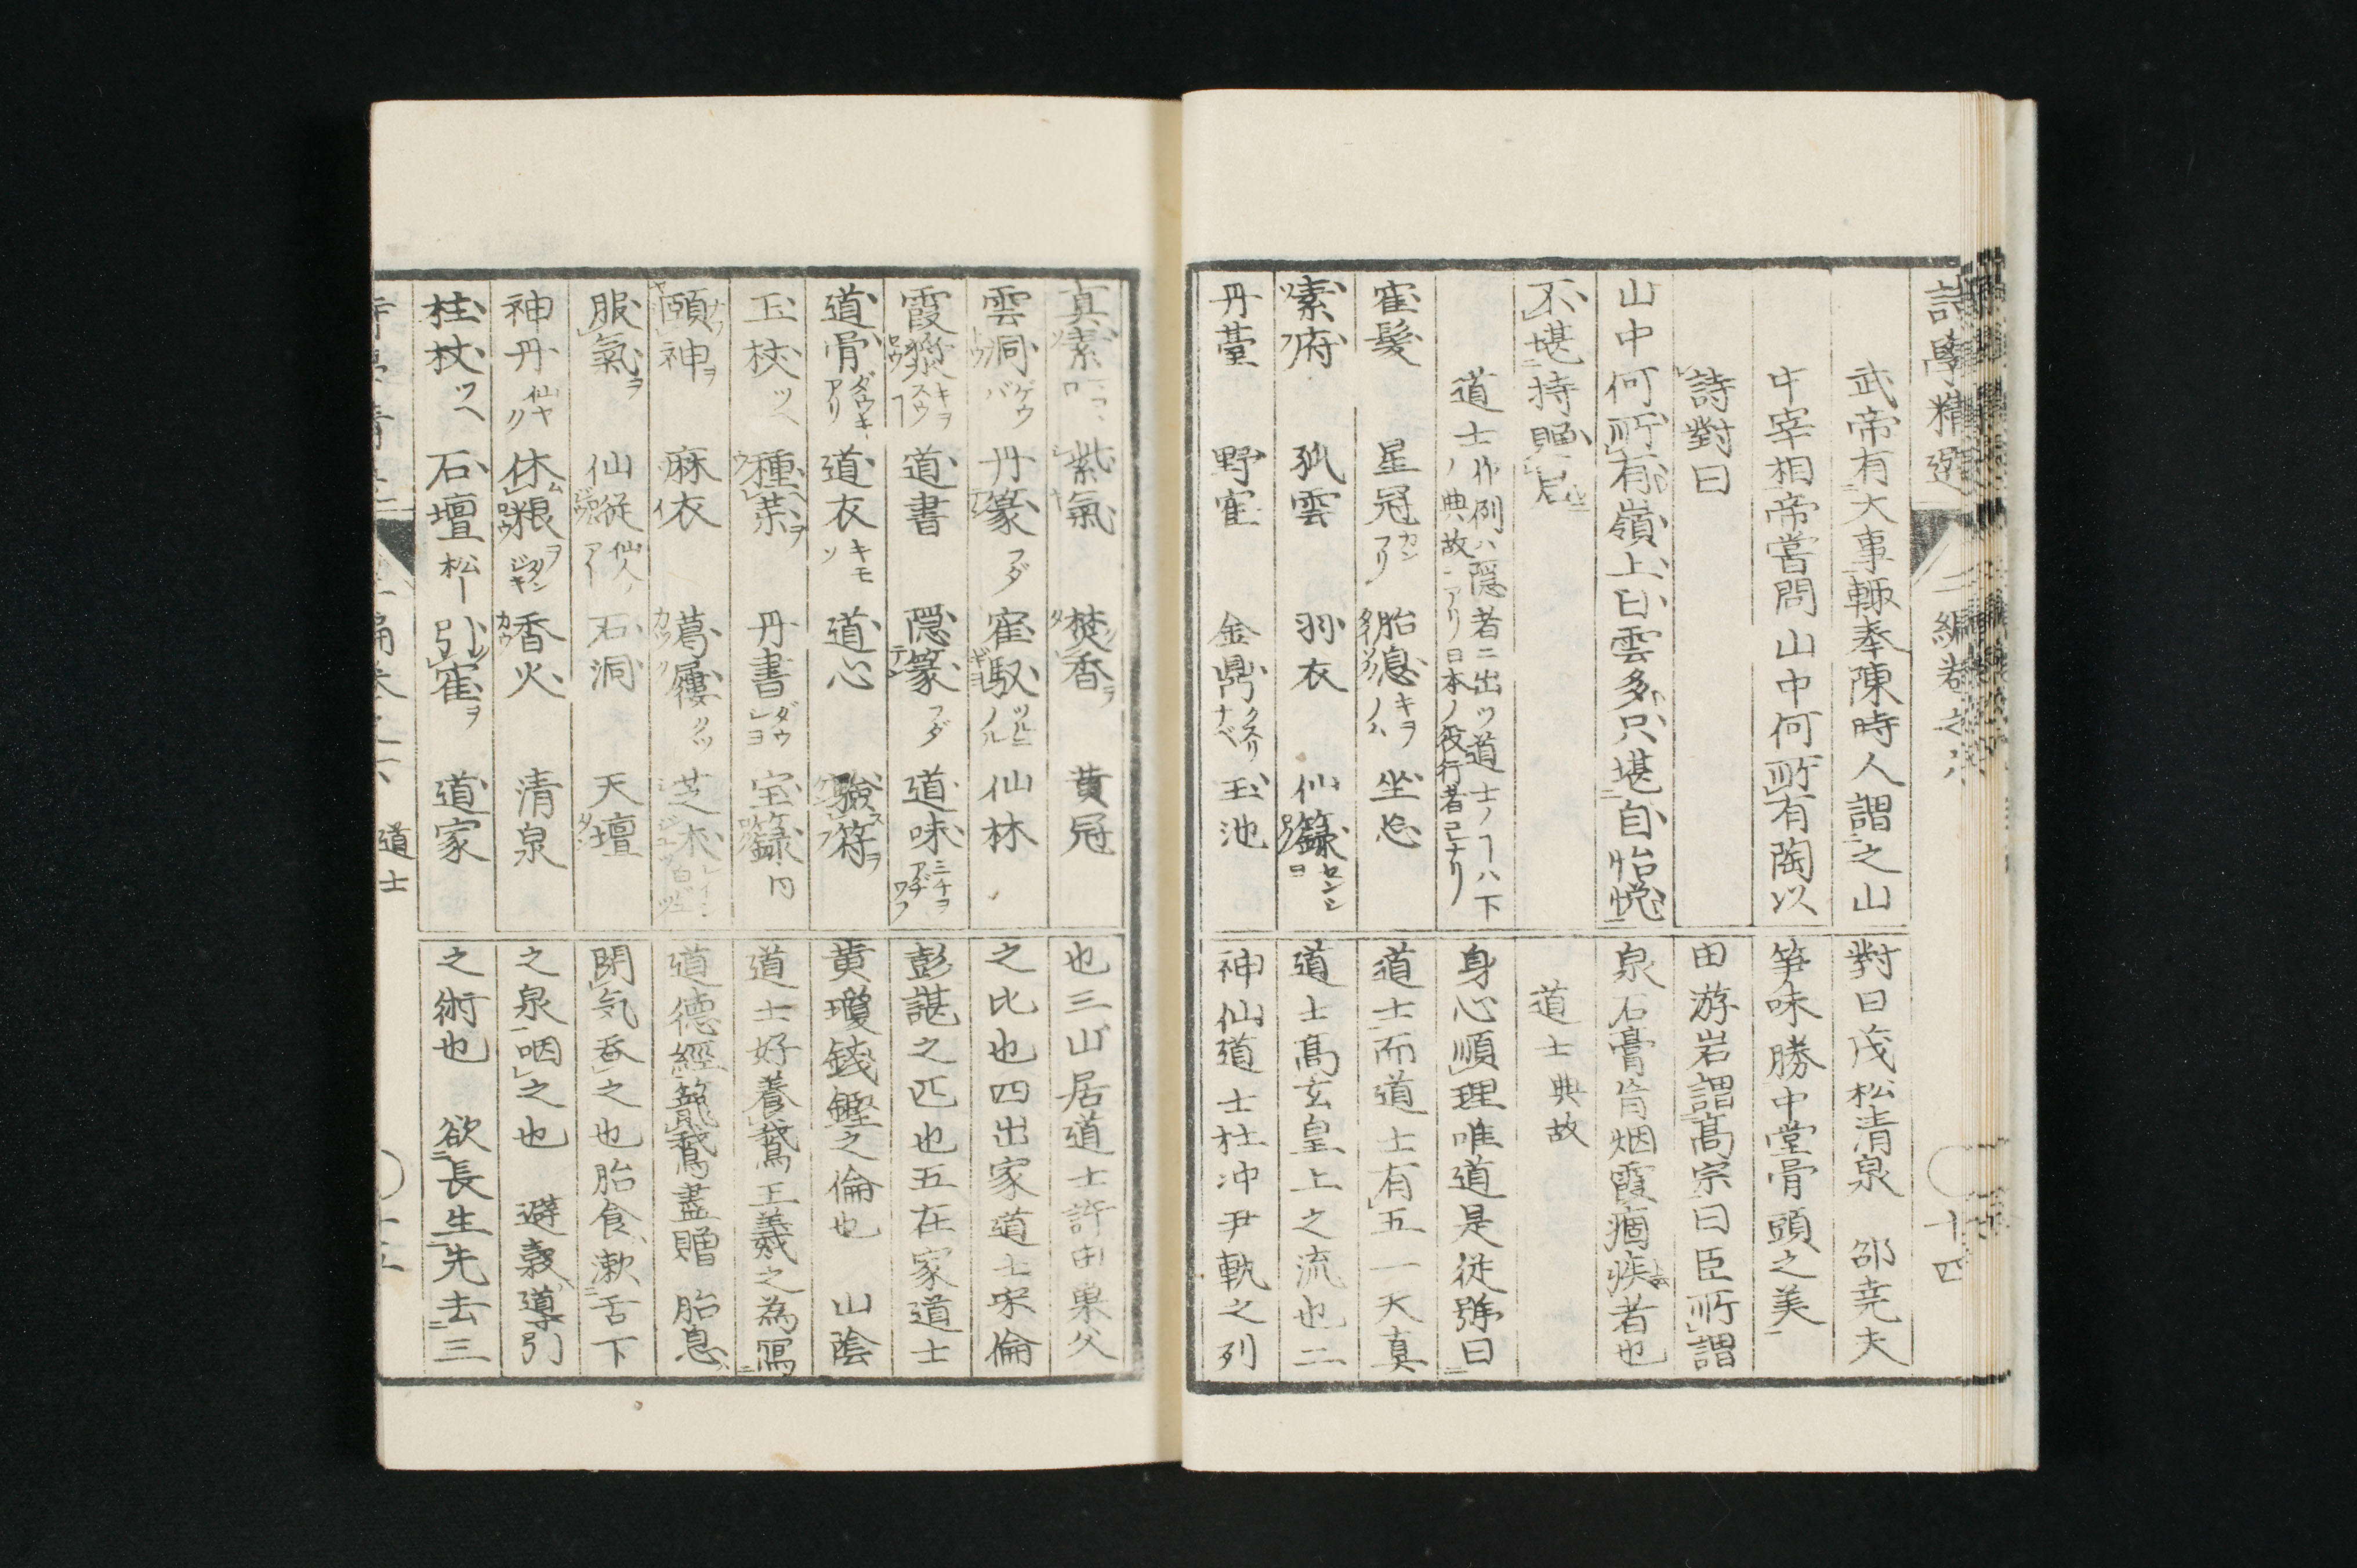 詩學精選 二編卷之六 十四
武帝有大事輙奉陳時人謂之山
中宰相帝嘗問山中何所有陶以
詩對曰
山中何所有嶺上白雲多只堪自怡悦
不堪持贈君
道士 作例ハ隠者ニ出ツ道士ノ ハ下
ノ典故ニアリ日本ノ役行者已ナリ
隺髪 星冠 胎息 坐忘
素府 孤雲 羽衣 仙籙
丹臺 野隺 金鼎 玉池
對曰茂松清泉 邵尭夫
笋味勝中堂骨頭之美
田游岩謂髙宗曰臣所謂
泉石膏肓烟霞痼疾者也
道士典故
身心順理唯道是従號曰
道士而道士有五一天真
道士髙玄皇上之流也二
神仙道士杜冲尹軌之列
真素 紫氣 焚香ヲ 黄冠
雲洞 丹篆フダ 隺馭 仙林
霞漿 道書 隠篆フダ 道味
道骨 道衣 道心 驗符ヲ
玉杖ツヘ 種菜ヲ 丹書 宝籙
頤神ヲ 麻衣 葛屨 芝朮
服氣ヲ 仙蹤 石洞 天壇
神丹 休粮ヲ 香火 清泉
柱杖ツヘ 石壇 引隺ヲ 道家
也三山居道士許由巣父
之比也四出家道士宋倫
彭諶之匹也五在家道士
黄瓊錢鏗之倫也 山陰
道士好養鵞王羲之為冩
道德經籠鵞盡贈 胎息
閉気呑之也胎食漱舌下
之泉咽之也 避穀導引
之術也 欲長生先去三
道士